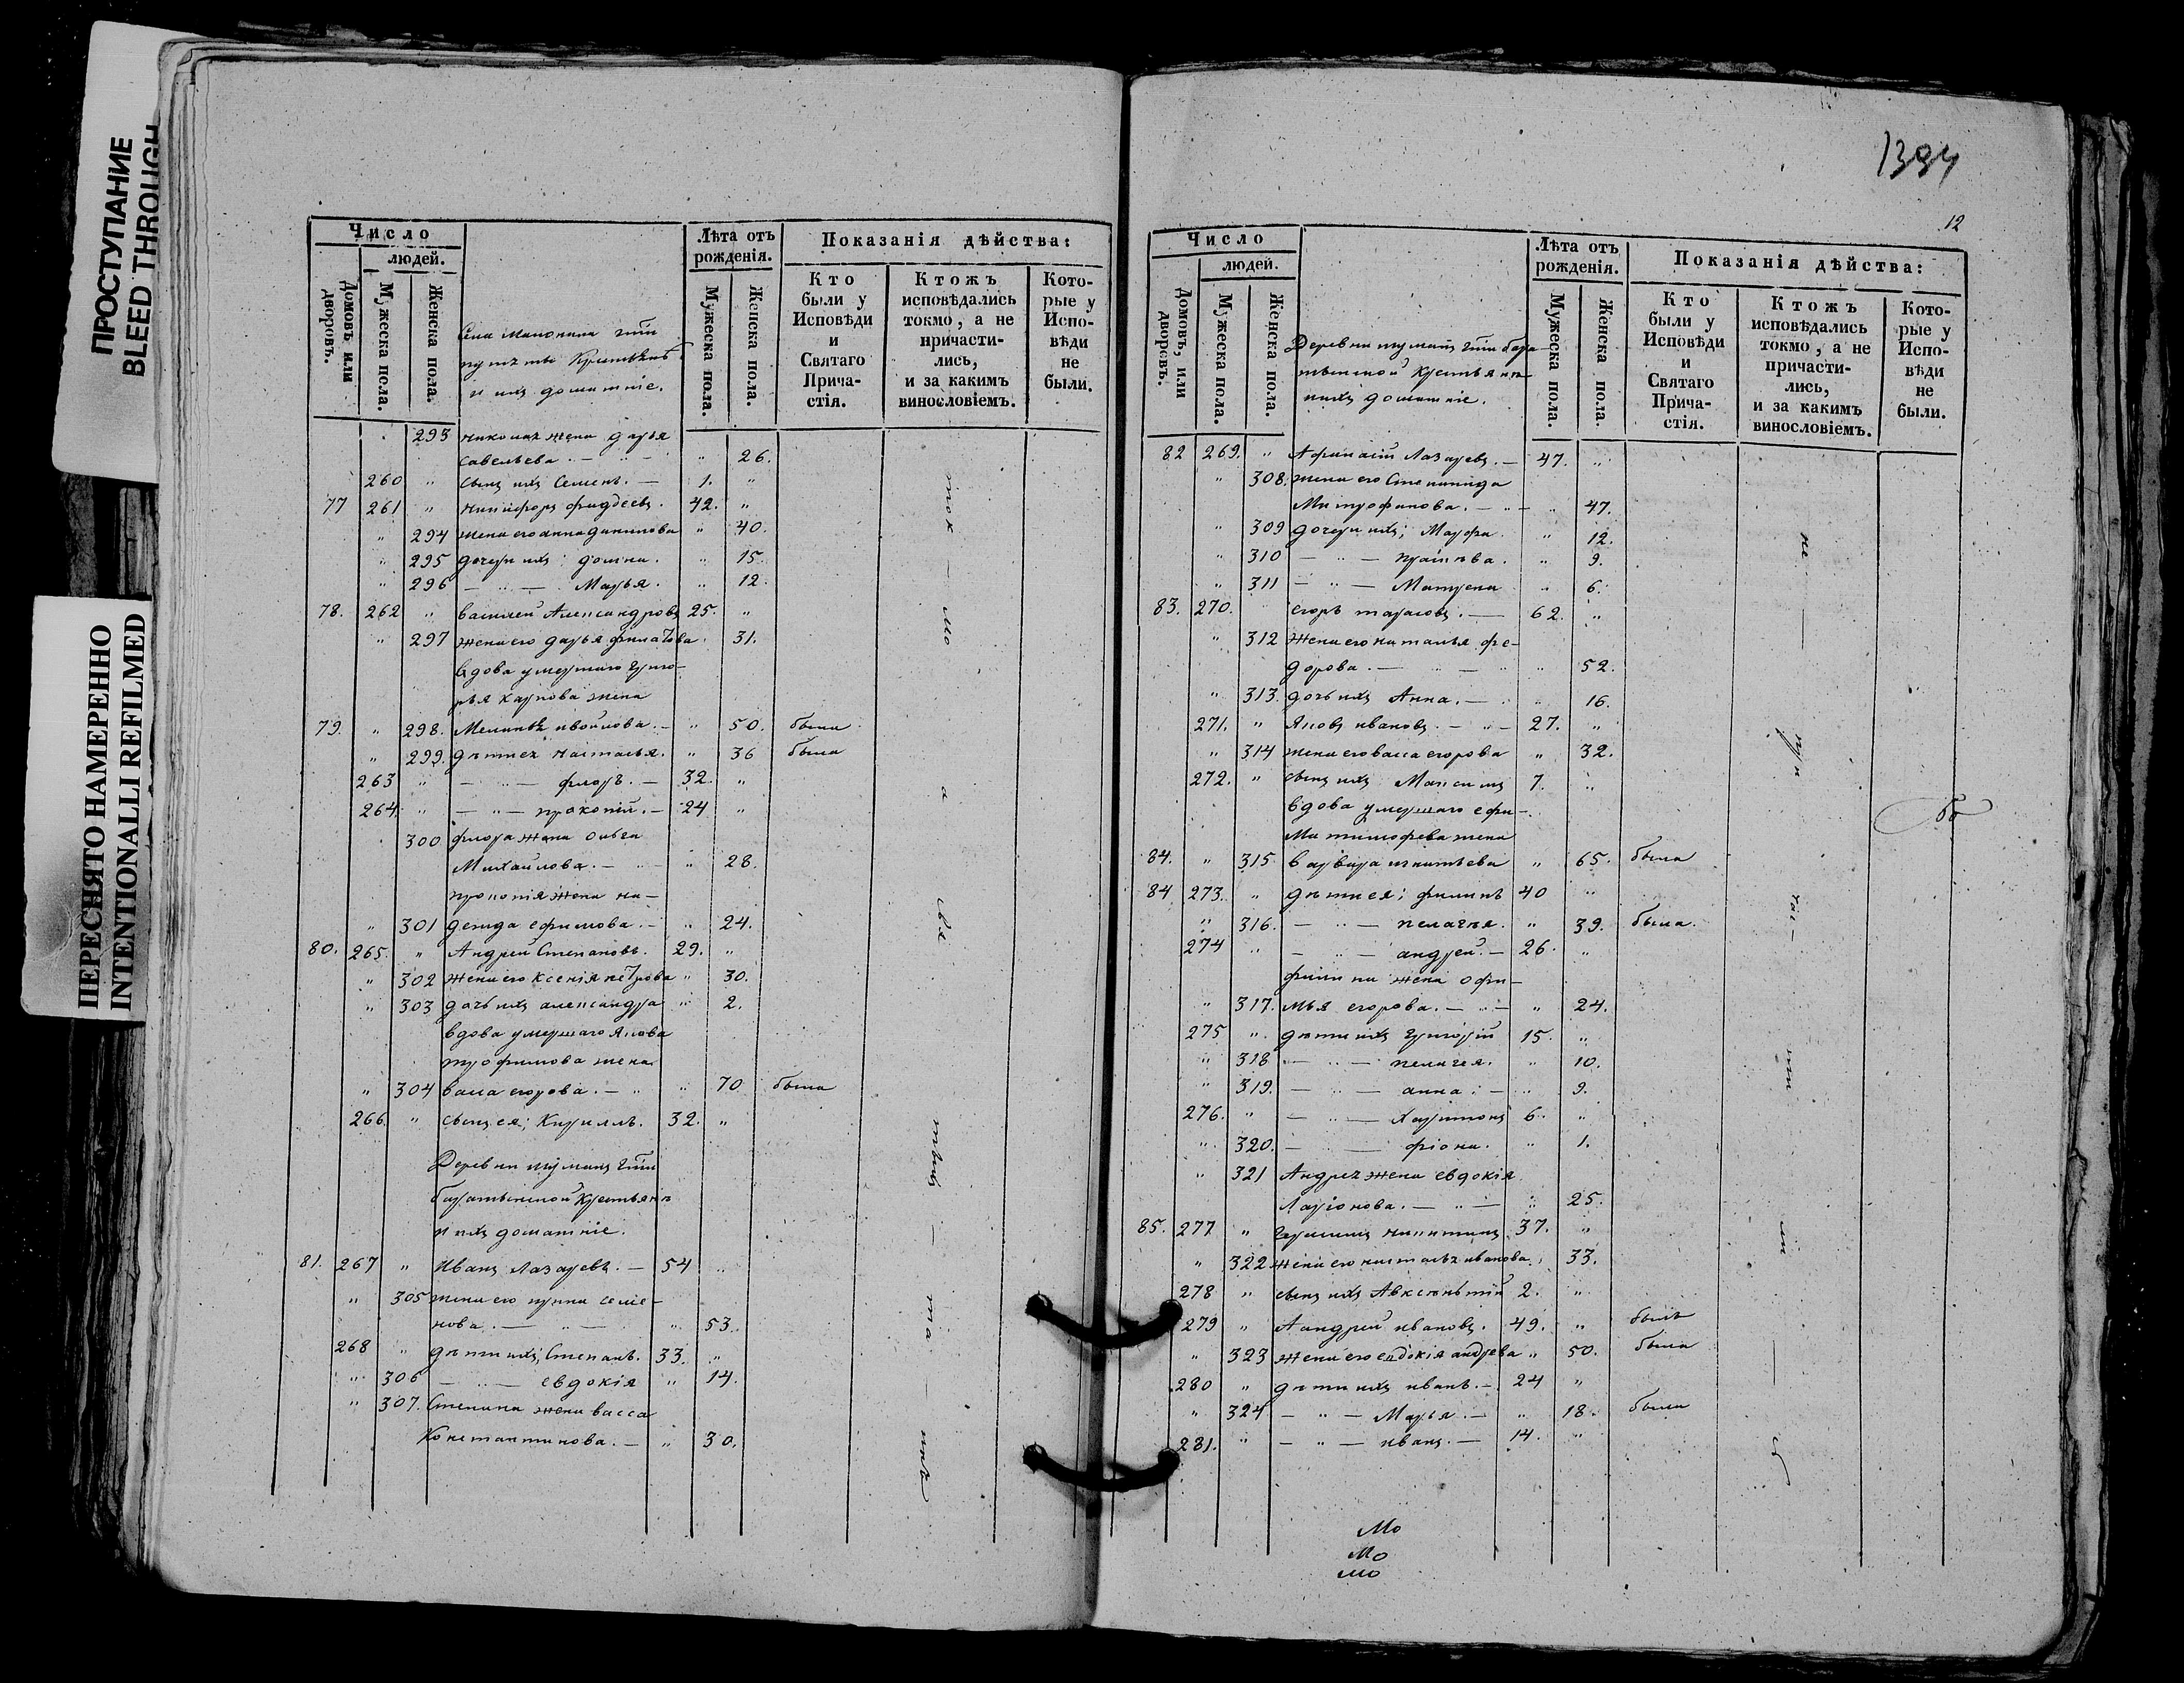 ПРОСТУПАНИЕ
BLEED THROUGH
ПЕРЕСНЯТО НАМЕРЕННО
INTENTIONALLI REFILMED
Число
людей.
Домовъ или дворовъ.
Мужеска пола.
Женска пола.
Лѣта отъ рожденія.
Мужеска пола.
Женска пола.
Показанія дѣйства:
Кто были у Исповѣди и Святаго Прича-стія.
Ктожъ исповѣдались токмо, а не причасти-лись, и за какимъ винословіемъ.
Кото-рые у Испо-вѣди не были.
и ихъ домашніе.
293 жена дарья
савельева. — " — " 26.
260 " сынъ ихъ Семенъ. — 1. "
77 261 " никифоръ фадеевъ. 42. "
" 294 жена его анна данилова " 40.
" 295 дочери ихъ: домна. " 15.
" 296 — " — Марья. " 12.
78. 262 " василей Александровъ 25. "
" 297 жена его дарья филатова. 31.
вдова умершаго григо-
рья карпова жена
79. " 298. " 50. была
" 299. дѣти ея настасья. " 36 была
263 " — " — флоръ. — 32. "
264. " — " — прокопій. — 24 "
300 флора жена ольга
Михайлова. — " — " 28.
прокопія жена на-
" 301 дежда ефимова. — " 24.
80. 265. " Андрей Степановъ. 29. "
" 302 жена его ксенія петрова " 30.
" 303 дочь ихъ александра " 2.
вдова умершаго Якова
трофимова жена
" 304 васса егорова. — " " 70 была
266. " сынъ ея; Кириллъ. 32. "
Деревни
крестьянѣ
и ихъ домашніе.
81. 267 " Иванъ Лазаревъ. — 54 "
" 305 жена его семе-
нова. — " — " 53.
268 " дѣти ихъ; Степанъ. 33. "
" 306 — " — евдокія " 14.
" 307. Степана жена васса
Константинова. — " 30.
ток — мо
а
свя
1394
12
Число
людей.
Домовъ, или дворовъ.
Мужеска пола.
Женска пола.
Деревни
крестьянѣ
и ихъ домашніе.
Лѣта отъ рожденія.
Мужеска пола.
Женска пола.
Показанія дѣйства:
Кто были у Исповѣди и Святаго Прича-стія.
Ктожъ исповѣдались токмо, а не причасти-лись, и за какимъ винословіемъ.
Кото-рые у Испо-вѣди не были.
82 269. " Афанасій Лазаревъ. — 47. "
" 308. жена его Степанида
Митрофанова. — " — " 47.
" 309 дочери ихъ; Марфа. " 12.
" 310 — " — " 9.
" 311 — " — Матрена " 6.
83. 270. егоръ тарасовъ. — 62. "
" 312 жена его наталья фе-
дорова. — " — " 52.
" 313. дочь ихъ Анна. — " 16.
271. " Яковъ ивановъ. — " — 27. "
" 314 жена его васса егорова " 32.
272. " сынъ ихъ Максимъ 7. "
вдова умершаго ефи-
ма тимофеева жена
84. " 315. варвара игнатьева " 65. была
84 273. " дѣти ея; филипъ 40 "
" 316. — " — пелагея. " 39. была.
274 " — " — андрей. — 26. "
филипа жена офи-
" 317. мья егорова. — " — " 24.
275 " дѣти ихъ григорій 15. "
" 318 — " — пелагея. " 10.
" 319. — " — анна; — " 9.
276. " — " — Харитонъ 6. "
" 320. — " — фіона. " 1.
" 321 Андрея жена евдокія
Ларіонова. — " — " 25.
85. 277 " никитинъ 37. "
" 322 жена его настасья иванова " 33.
278 " сынъ ихъ Авксентій 2. "
279 " Андрей ивановъ. 49. " былъ
" 323 жена его евдокія андреева " 50. была
280 " дѣти ихъ иванъ. — 24 "
" 324 — " — Марья. — " 18. была
281. " — " — иванъ. — 14. "
не
при
ча-
Мо
Мо
мо